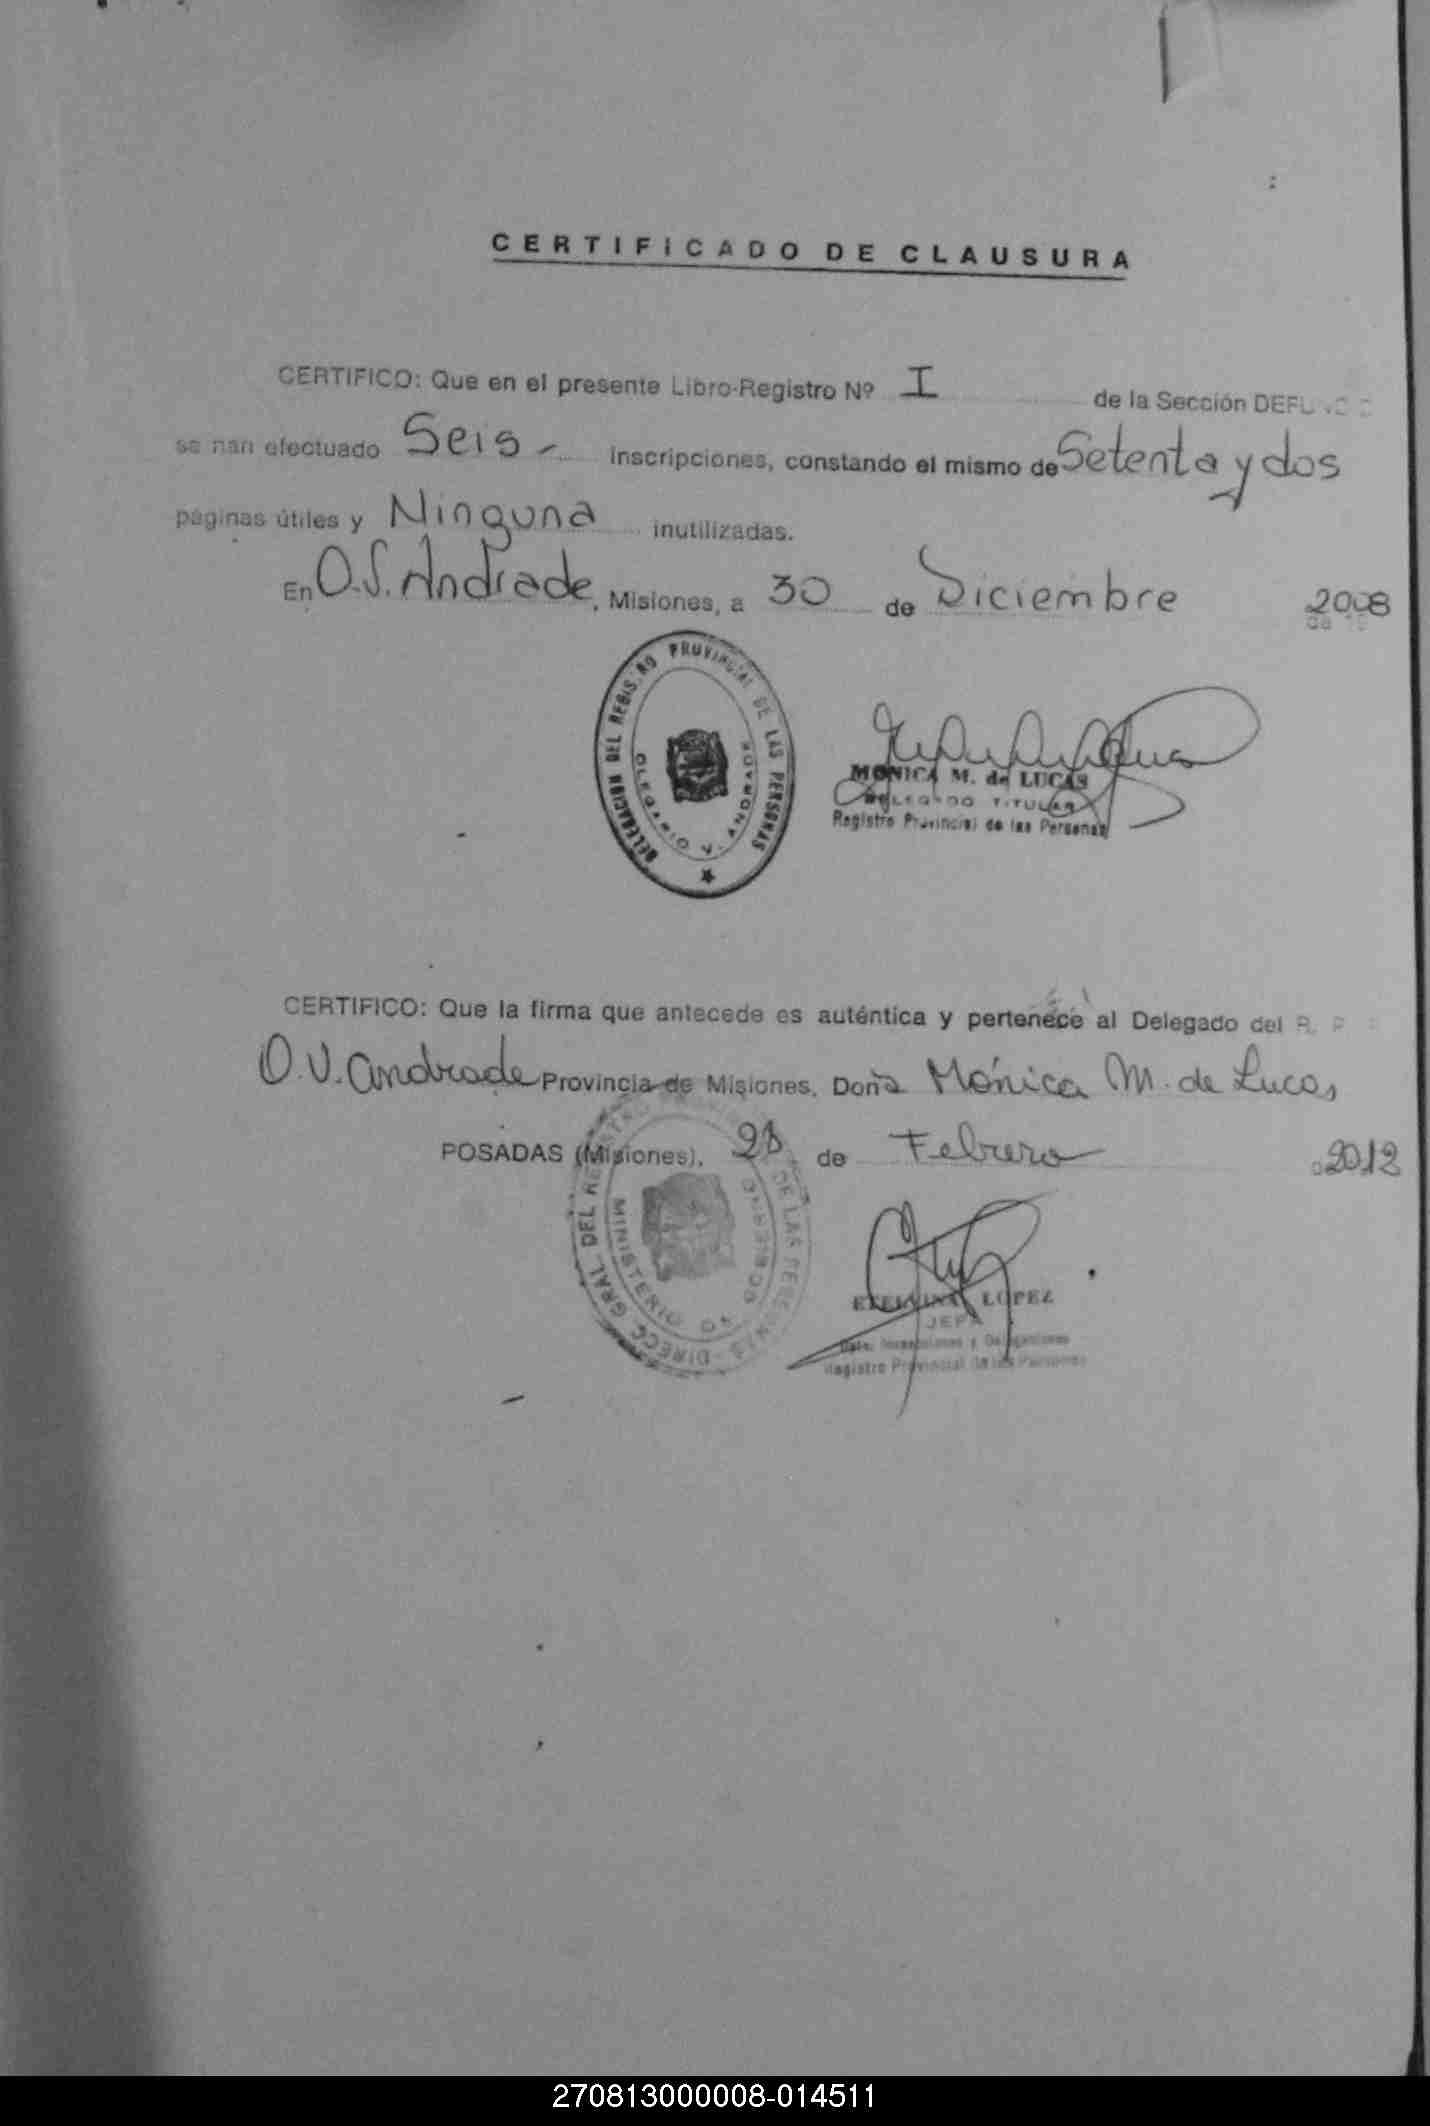 CERTIFICADO DE CLAUSURA
CERTIFICO: Que en el presente Libro-Registro Nº I de la Sección
se han efectuado Seis - Inscripciones, constando el mismo de Setenta y dos
páginas útiles y Ninguna inutilizadas.
En O.V. Andrade, Misiones, a 30 de Diciembre 2008
DELEGACION DEL REGISTRO PROVINCIAL DE LAS PERSONAS
OLEGARIO V. ANDRADE
MONICA M. de LUCAS
DELEGADO TITULAR
Registro Provincial de las Personas
CERTIFICO: Que la firma que antecede es auténtica y pertenece al Delegado del R. P.
O.V. Andrade Provincia de Misiones, Doña Mónica M. de Lucas
POSADAS (Misiones), 28 de Febrero 2012
DIRECC. GRAL. DEL REGISTRO DE LAS PERSONAS
MINISTERIO DE GOBIERNO
LOPEZ
JEFA
Registro Provincial de las Personas
270813000008-014511